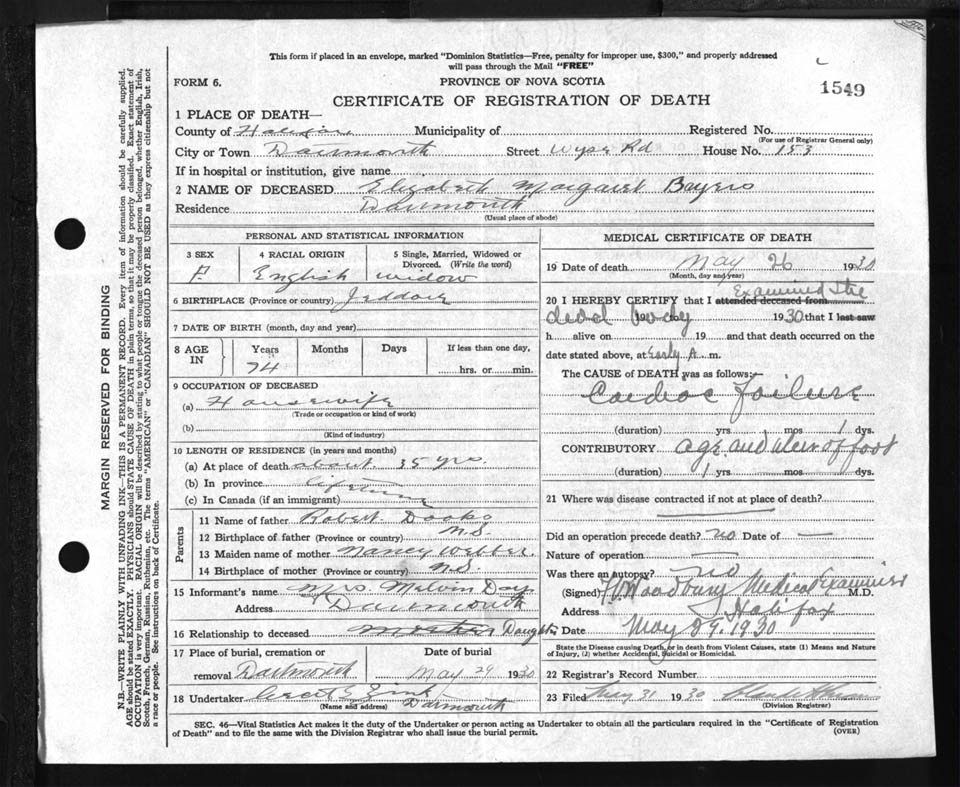 This form if placed in an envelope, marked "Dominion Statistics—Free, penalty for improper use, $300," and properly addressed
will pass through the Mail "FREE"
FORM 6. PROVINCE OF NOVA SCOTIA
1549
CERTIFICATE OF REGISTRATION OF DEATH
1 PLACE OF DEATH—
County of Halifax Municipality of Registered No.
(For use of Registrar General only)
City or Town Dartmouth Street Wyse Rd House No. 153
If in hospital or institution, give name
2 NAME OF DECEASED Elizabeth Margaret Bayers
Residence Dartmouth
(Usual place of abode)
PERSONAL AND STATISTICAL INFORMATION
3 SEX 4 RACIAL ORIGIN 5 Single, Married, Widowed or
Divorced. (Write the word)
F. English widow
6 BIRTHPLACE (Province or country) Jeddore
7 DATE OF BIRTH (month, day and year)
8 AGE IN Years Months Days If less than one day,
74 hrs. or min.
9 OCCUPATION OF DECEASED
(a) Housewife
(Trade or occupation or kind of work)
(b)
(Kind of industry)
10 LENGTH OF RESIDENCE (in years and months)
(a) At place of death about 35 yrs.
(b) In province lifetime
(c) In Canada (if an immigrant)
Parents
11 Name of father Robert Dooks
12 Birthplace of father (Province or country) N.S.
13 Maiden name of mother Nancy Webber.
14 Birthplace of mother (Province or country) N.S.
15 Informant's name Mrs Melvin Day
Address Dartmouth
16 Relationship to deceased Mother Daughter
17 Place of burial, cremation or Date of burial
removal Dartmouth May 29 1930
18 Undertaker Zink
(Name and address) Dartmouth
MEDICAL CERTIFICATE OF DEATH
19 Date of death May 26 1930
(Month, day and year)
Examined the
20 I HEREBY CERTIFY that I attended deceased from
dead body 19 1930 that I last saw
h alive on 19 and that death occurred on the
date stated above, at Early A. m.
The CAUSE OF DEATH was as follows:—
Cardiac Failure
(duration) yrs mos 1 dys.
CONTRIBUTORY age and ulcer of foot
(duration) 1 yrs mos dys.
21 Where was disease contracted if not at place of death?
Did an operation precede death? no Date of —
Nature of operation —
Was there an autopsy? no
(Signed) Woodbury Medical Examiner M.D.
Address Halifax
Date May 29. 1930
State the Disease causing Death, or in death from Violent Causes, state (1) Means and Nature
of Injury, (2) whether Accidental, Suicidal or Homicidal.
22 Registrar's Record Number
23 Filed May 31 1930
(Division Registrar)
SEC. 46—Vital Statistics Act makes it the duty of the Undertaker or person acting as Undertaker to obtain all the particulars required in the "Certificate of Registration
of Death" and to file the same with the Division Registrar who shall issue the burial permit. (OVER)
MARGIN RESERVED FOR BINDING
N.B.—WRITE PLAINLY WITH UNFADING INK—THIS IS A PERMANENT RECORD. Every item of information should be carefully supplied.
AGE should be stated EXACTLY. PHYSICIANS should STATE CAUSE OF DEATH in plain terms, so that it may be properly classified. Exact statement of
OCCUPATION is very important. RACIAL ORIGIN will be described by stating to what people or tongue the deceased person belonged, whether English, Irish,
Scotch, French, German, Russian, Ruthenian, etc. The terms "AMERICAN" or "CANADIAN" SHOULD NOT BE USED as they express citizenship but not
a race or people. See instructions on back of Certificate.